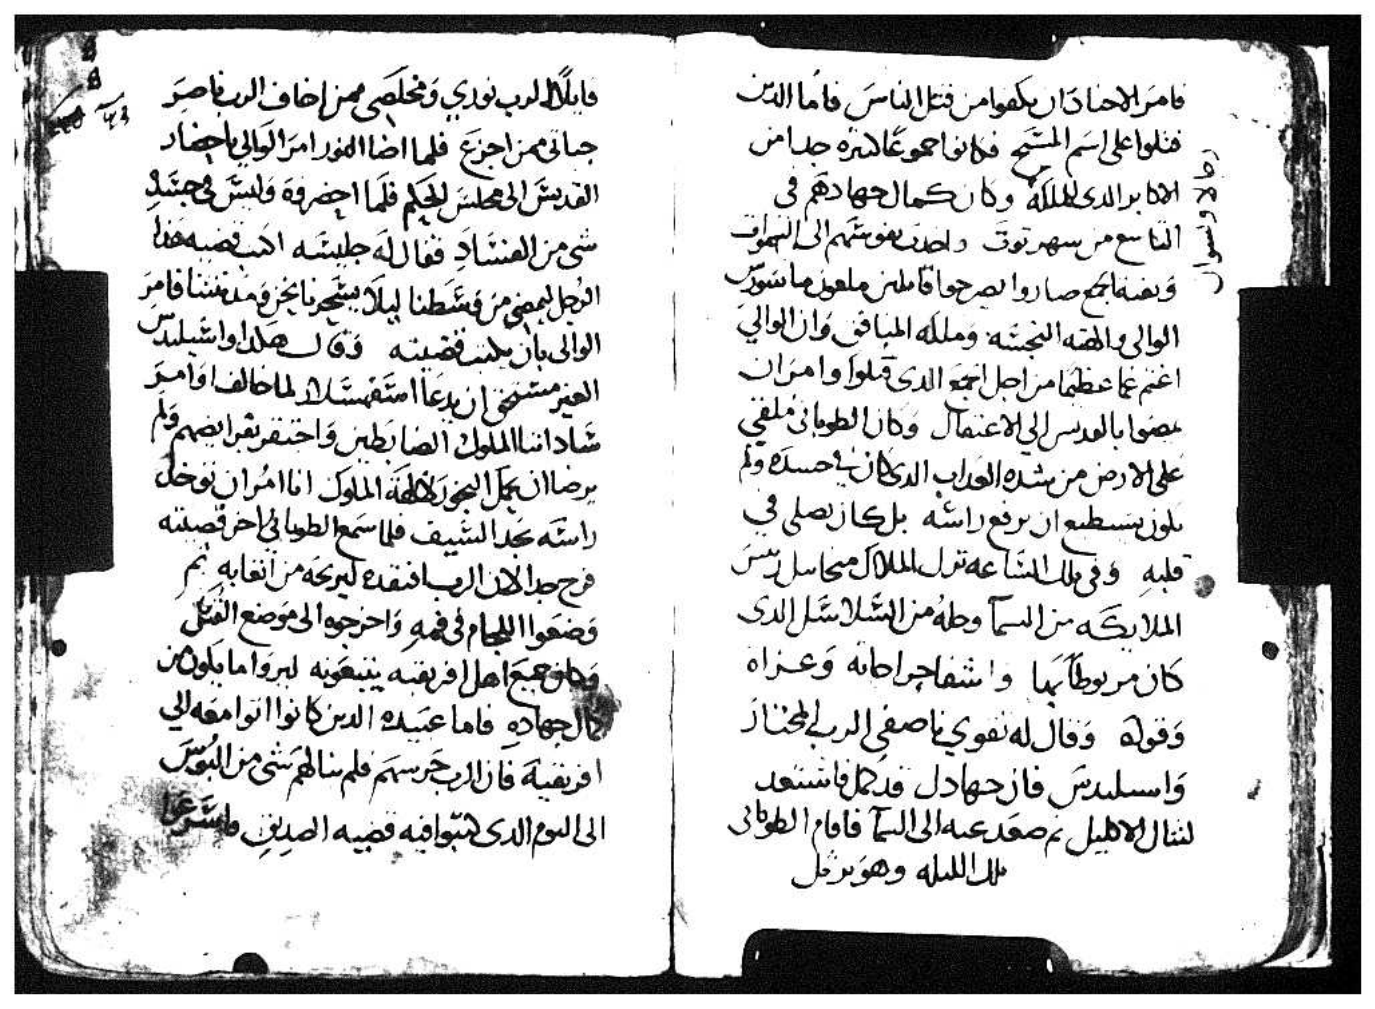 فامر الاجناد ان يكفوا من قتل الناس فاما الدين
قتلوا على اسم المسيح فكانوا جموعا كثيره جدا من
الاكابر الدى للملكة وكان كمال جهادهم فى
التاسع من شهر توت واخدت نفوسهم الى السموات
رجالا ونسوان
وبقية الجمع صاروا يصرخوا قايلين ملعون
الوالى والهته النجسه وملكه المنافق وان الوالي
اغتم غما عظيما من اجل الجمع الدى قتلوا وامر ان
يمضوا بالقديس الي الاعتقال وكان الطوبانى ملقي
على الارض من شده العداب الدى كان في جسده ولم
يكون يستطيع ان يرفع راسه بل كان يصلى في
قلبه وفى تلك الساعه نزل الملاك ميخاييل رييس
الملايكه من السمآ وحله من السلاسل الدى
كان مربوطا بها واشفا جراحاته وعزاه
وقواه وقال له تقوي يا صفي الرب المختار
واسيليدس فان جهادك قد كمل فاستعد
لتنال الاكليل ثم صعد عنه الى السمآ فاقام الطوبانى
تلك الليله وهو يرتل
قايلا الرب نوري ومخلصي ممن اخاف الرب ناصر
حياتى ممن اجزع فلما اضا النور امر الوالي باحضار
القديس الى مجلس الحكم فلما احضروه وليس في جسده
شى من الفساد فقال له جليسه اكتب قضيه هدا
الرجل ليمضي من وسطنا ليلا يسحرنا نحن ومدينتنا فامر
الوالى بان يكتب قضيته وقال هكدا واسيليدس
الغير مستحق ان يدعا اسفهسلار لما خالف اوامر
ساداتنا الملوك الضابطين واحتقر بقرابينهم ولم
يرضا ان يحمل البخور لالهة الملوك انا امر ان توخد
راسه بحد السيف فلما سمع الطوبانى اخر قضيته
فرح جدا لان الرب افتقده ليريحه من اتعابه ثم
وضعوا اللجام فى فمه واخرجوه الى موضع القتل
وكان جميع اهل افريقيه يتبعونه ليروا ما يكون من
كمال جهاده فاما عبيده الدين كانوا اتوا معه الي
افريقية فان الرب حرسهم فلم ينالهم شى من البوس
الى اليوم الدى كتبوا فيه قضيه الصديق